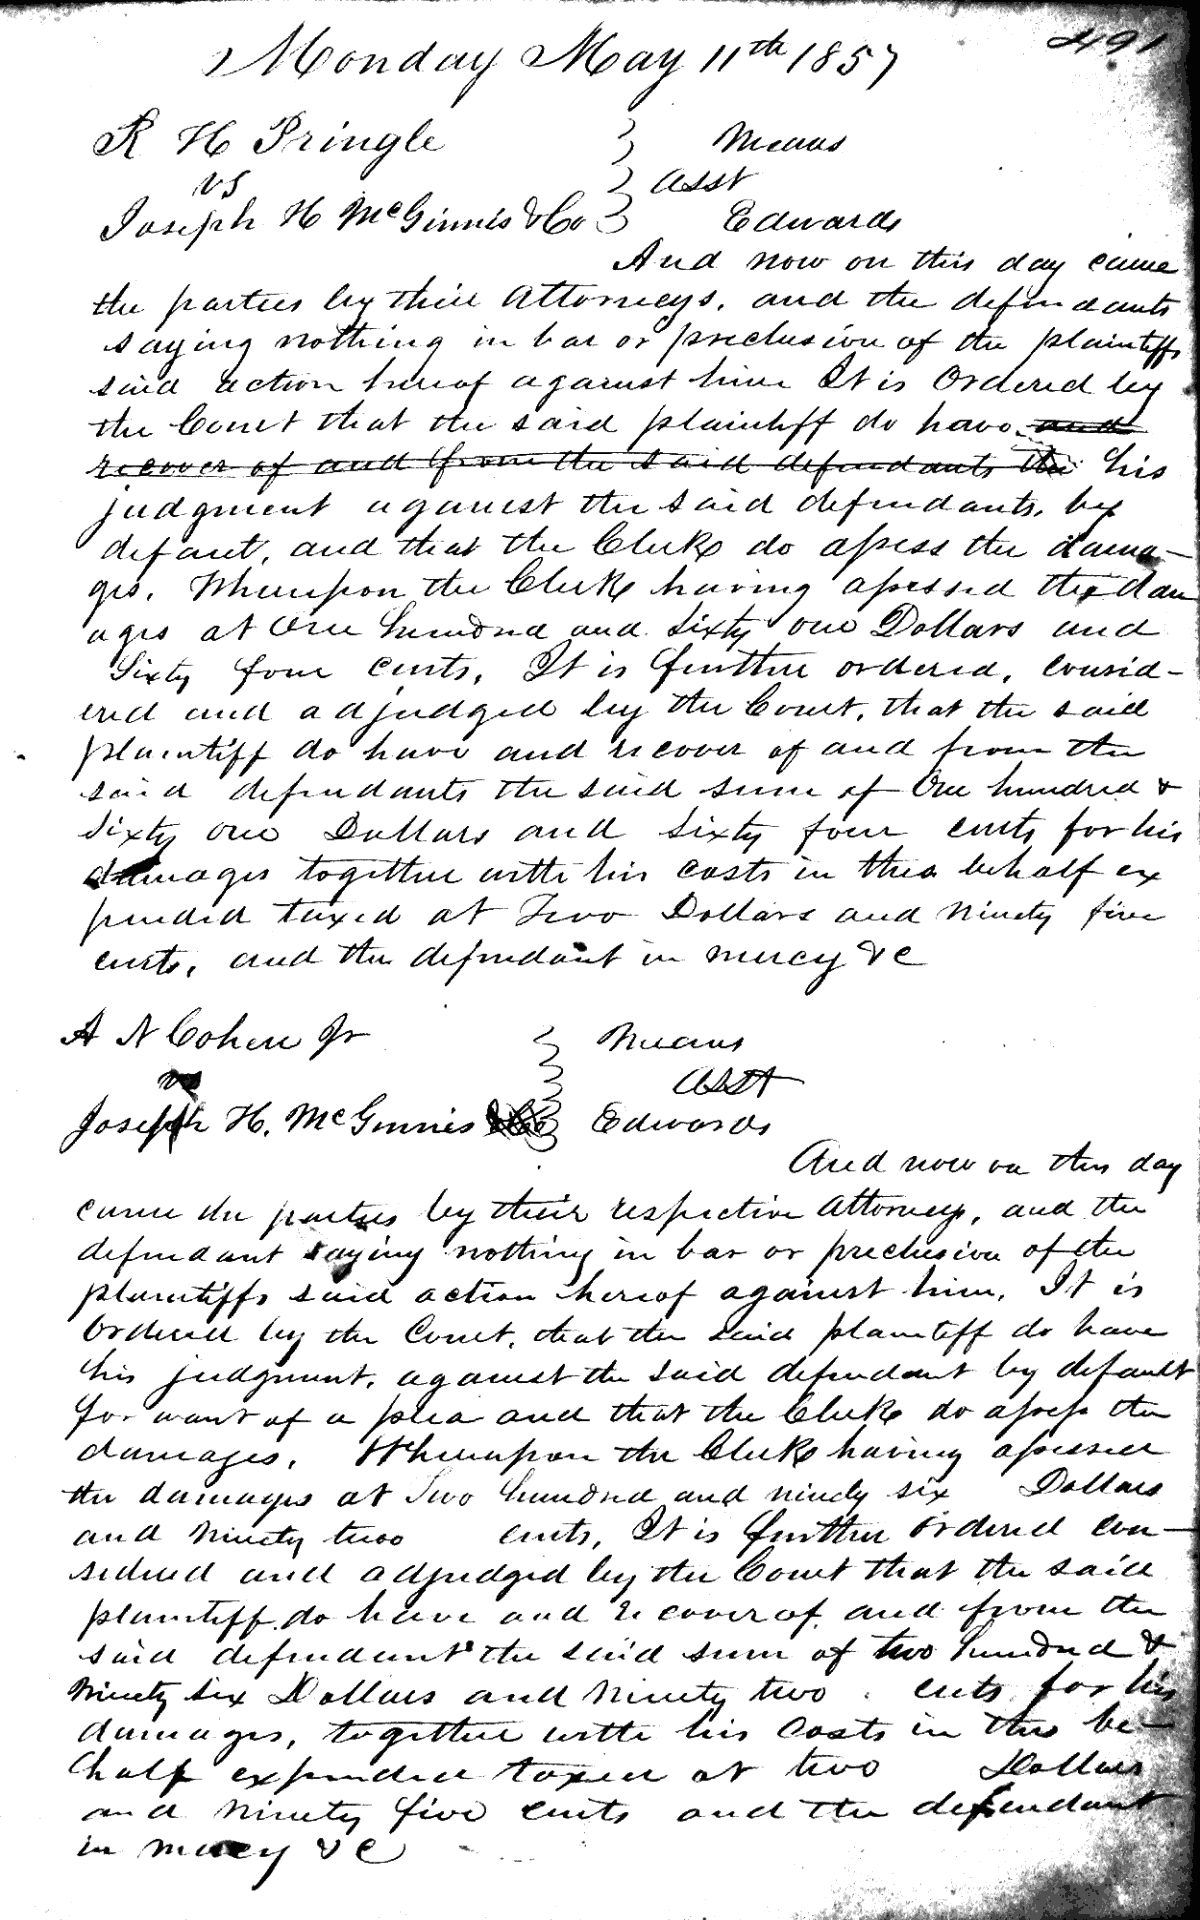 491
Monday May 11th 1857
R H Pringle } Means
vs } Asst
Joseph H McGinnis & Co } Edwards
And now on this day came
the parties by their Attorneys, and the defendants
saying nothing in bar or preclusion of the plaintiffs
said action hereof against him It is Ordered by
the Court that the said plaintiff do have and
recover of and from the said defendants the his
judgment against the said defendants, by
defaut, and that the Clerk do assess the dama-
ges. Whereupon the Clerk having assessed the dam
ages at One hundred and Sixty one Dollars and
Sixty four cents, It is further ordered, consid-
ered and adjudged by the Court, that the said
plaintiff do have and recover of and from the
said defendants the said sum of One hundred &
Sixty one Dollars and Sixty four cents for his
damages together with his costs in this behalf ex
pended taxed at Two Dollars and Ninety five
cents, and the defendant in mercy &c
A N Cohen Jr } Means
vs } Asst
Joseph H. McGinnis & Co } Edwards
And now on this day
came the parties by their respective Attorneys, and the
defendant saying nothing in bar or preclusion of the
plaintiffs said action hereof against him, It is
Ordered by the Court, that the said plaintiff do have
his judgment, against the said defendant by default
for want of a plea and that the Clerk do assess the
damages, Whereupon the Clerk having assessed
the damages at Two hundred and ninety six Dollars
and Ninety two cents, It is further ordered con-
sidered and adjudged by the Court that the said
plaintiff do have and recover of and from the
said defendant the said sum of two hundred &
Ninety six Dollars and Ninety two cents for his
damages, together with his costs in this be-
half expended taxed at two Dollars
and Ninety five cents and the defendant
in mercy &c